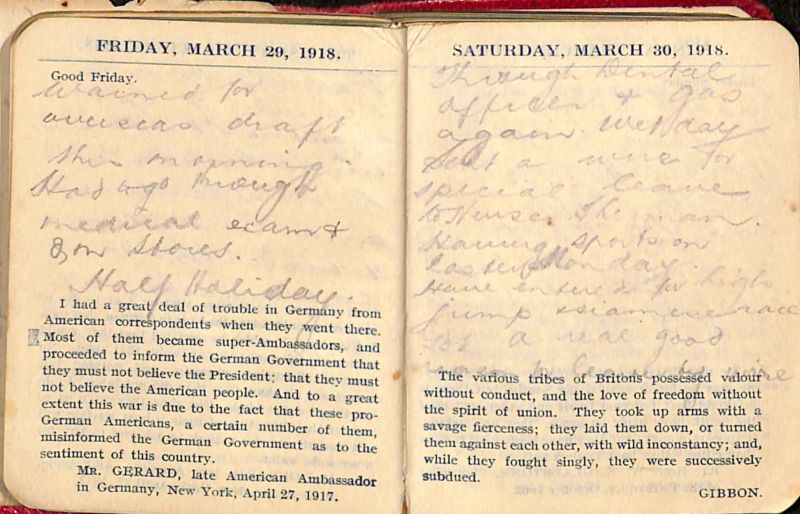 FRIDAY, MARCH 29, 1918.
Good Friday.
Warned for
overseas draft
this morning.
Had to go through
medical exam &
Q M Stores.
Half Holiday.
I had a great deal of trouble in Germany from
American correspondents when they went there.
Most of them became super-Ambassadors, and
proceeded to inform the German Government that
they must not believe the President; that they must
not believe the American people. And to a great
extent this war is due to the fact that these pro-
German Americans, a certain number of them,
misinformed the German Government as to the
sentiment of this country.
MR. GERARD, late American Ambassador
in Germany, New York, April 27, 1917.
SATURDAY, MARCH 30, 1918.
Through Dental
officer & gas
again. Wet day
Sent a wire for
special leave
to Nurse Sherman.
Having sports on
Easter Monday.
Have entered for high
jump siamese race
a real good
The various tribes of Britons possessed valour
without conduct, and the love of freedom without
the spirit of union. They took up arms with a
savage fierceness; they laid them down, or turned
them against each other, with wild inconstancy; and,
while they fought singly, they were successively
subdued.
GIBBON.